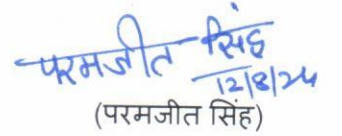 परमजीत सिंह
12/8/24
(परमजीत सिंह)